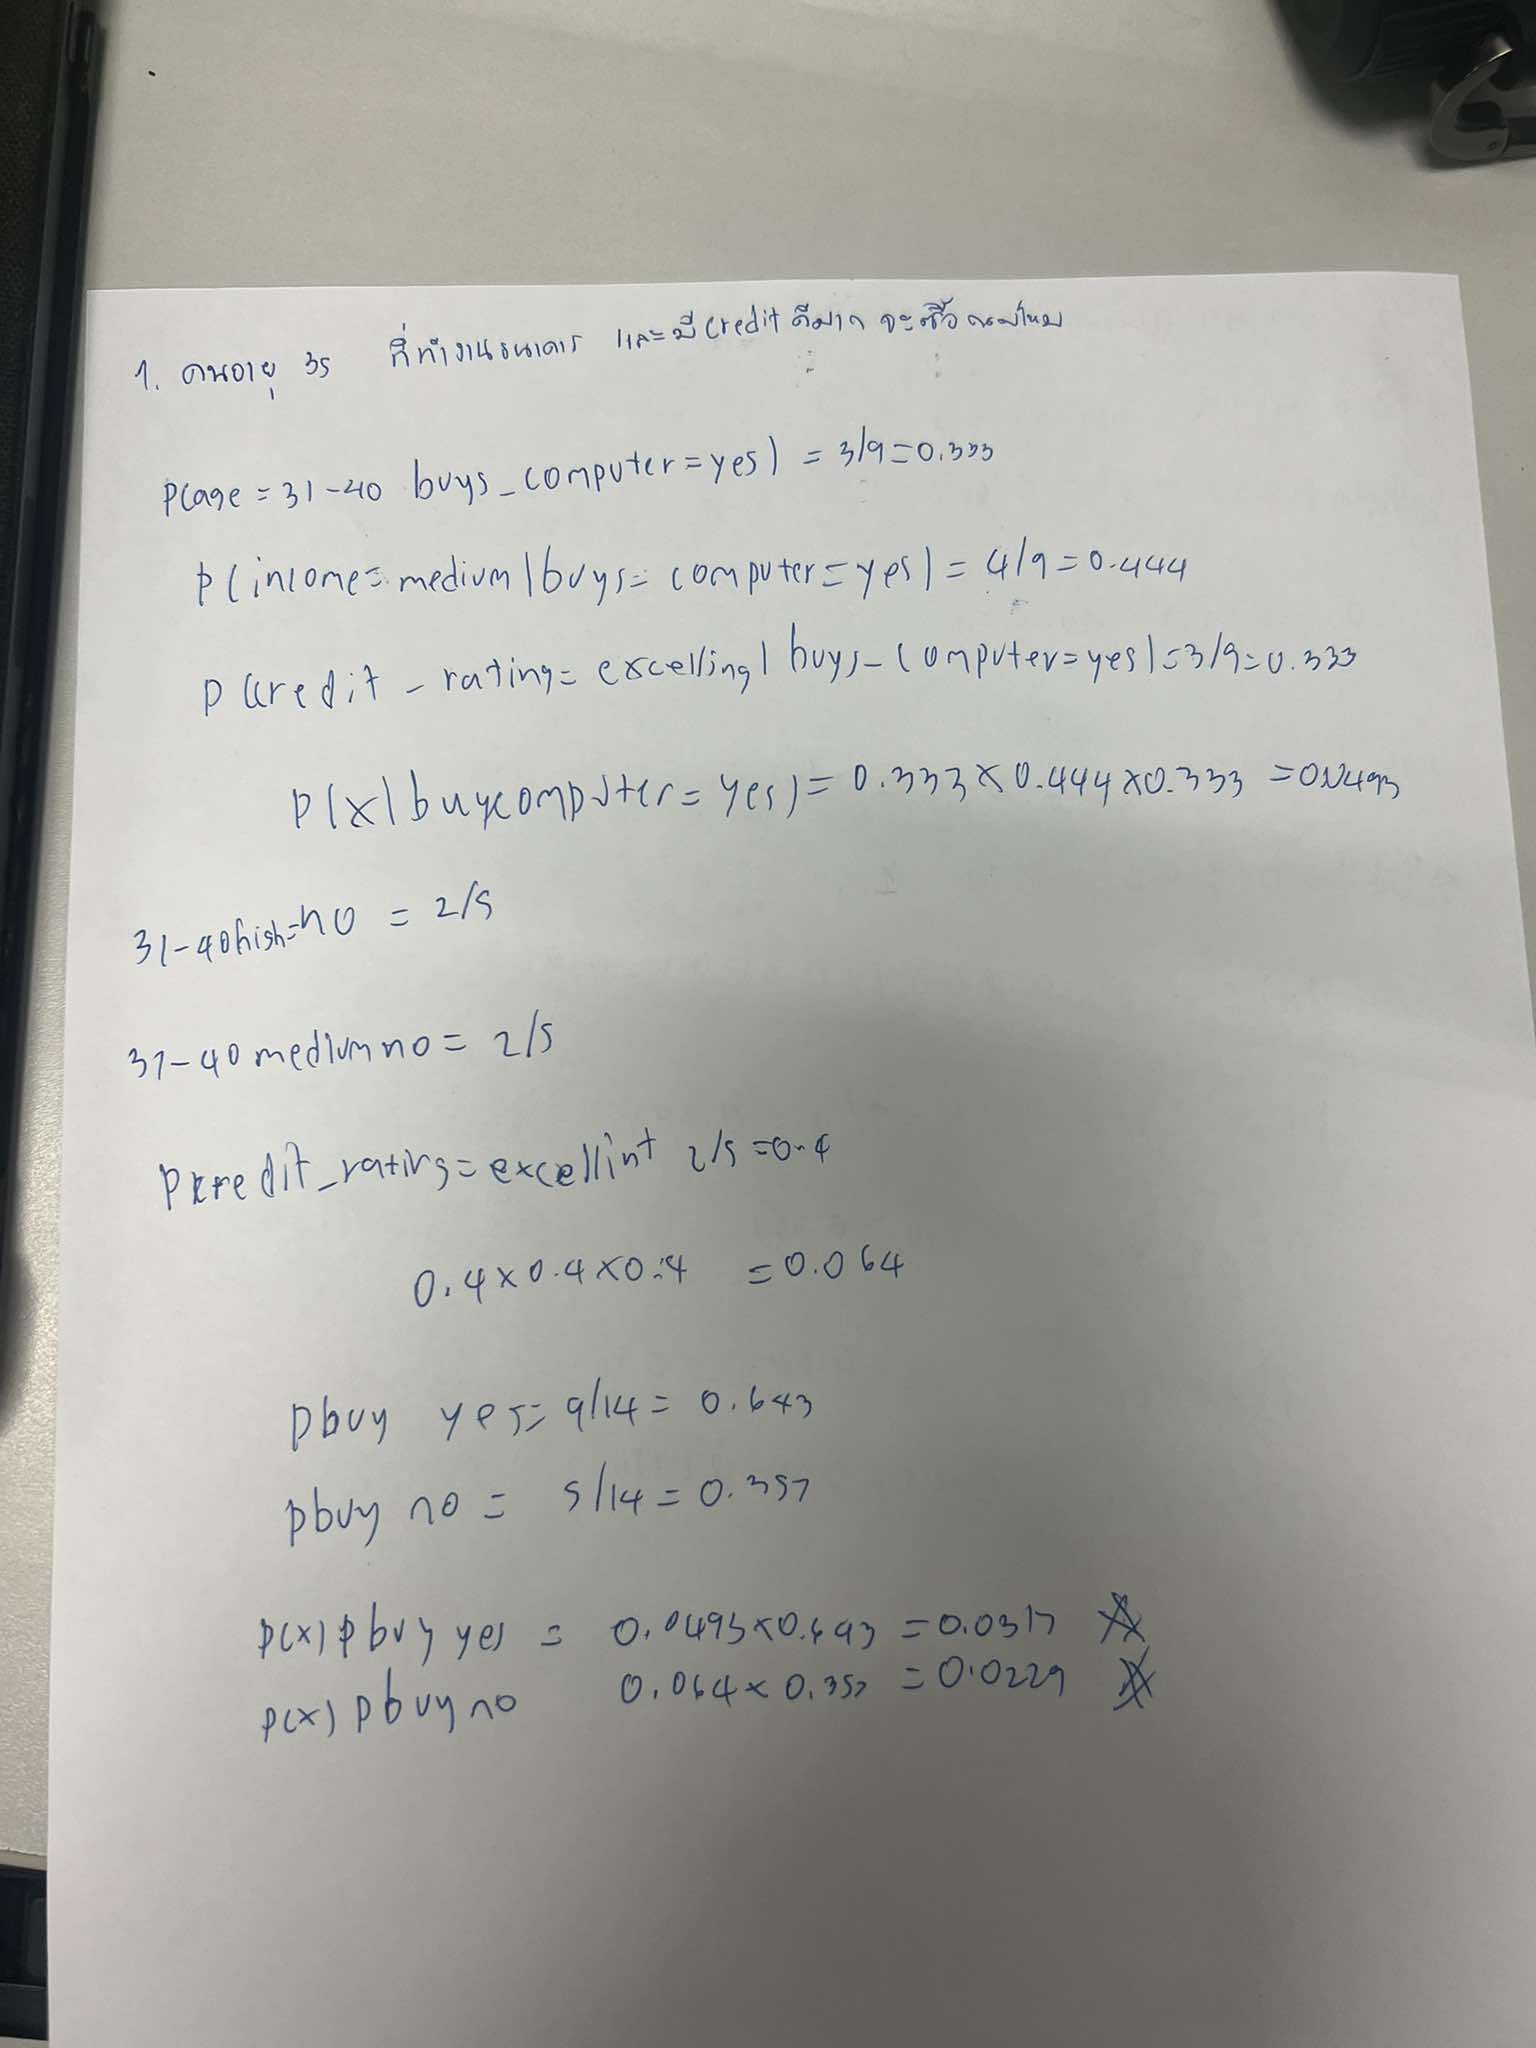 1. คนอายุ 35 ที่ทำงานธนาคาร และมี credit ดีมาก จะซื้อคอมไหม
P(age = 31-40 buys_computer = yes) = 3/9 = 0.333
P(income = medium | buys = computer = yes) = 4/9 = 0.444
P(credit - rating = excelling | buys - computer = yes) = 3/9 = 0.333
P(x | buycomputer = yes) = 0.333 x 0.444 x 0.333 = 0.0493
31-40 high = no = 2/5
31-40 medium no = 2/5
P(credit_rating = excellint 2/5 = 0.4
0.4 x 0.4 x 0.4 = 0.064
Pbuy yes = 9/14 = 0.643
Pbuy no = 5/14 = 0.357
P(x) P buy yes = 0.0493 x 0.643 = 0.0317
P(x) P buy no 0.064 x 0.357 = 0.0229